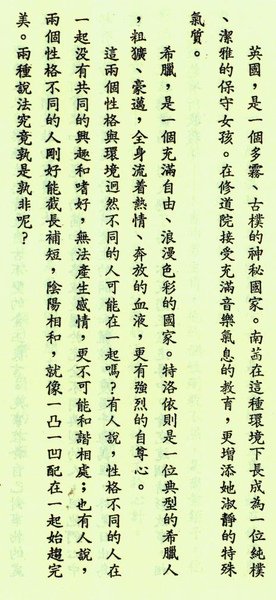 英國，是一個多霧、古樸的神秘國家。南茜在這種環境下長成為一位純樸
、潔雅的保守女孩。在修道院接受充滿音樂氣息的教育，更增添她淑靜的特殊
氣質。
希臘，是一個充滿自由、浪漫色彩的國家。特洛依則是一位典型的希臘人
，粗獷、豪邁，全身流着熱情、奔放的血液，更有強烈的自尊心。
這兩個性格與環境迥然不同的人可能在一起嗎？有人說，性格不同的人在
一起沒有共同的興趣和嗜好，無法產生感情，更不可能和諧相處；也有人說，
兩個性格不同的人剛好能截長補短，陰陽相和，就像一凸一凹配在一起始趨完
美。兩種說法究竟孰是孰非呢？